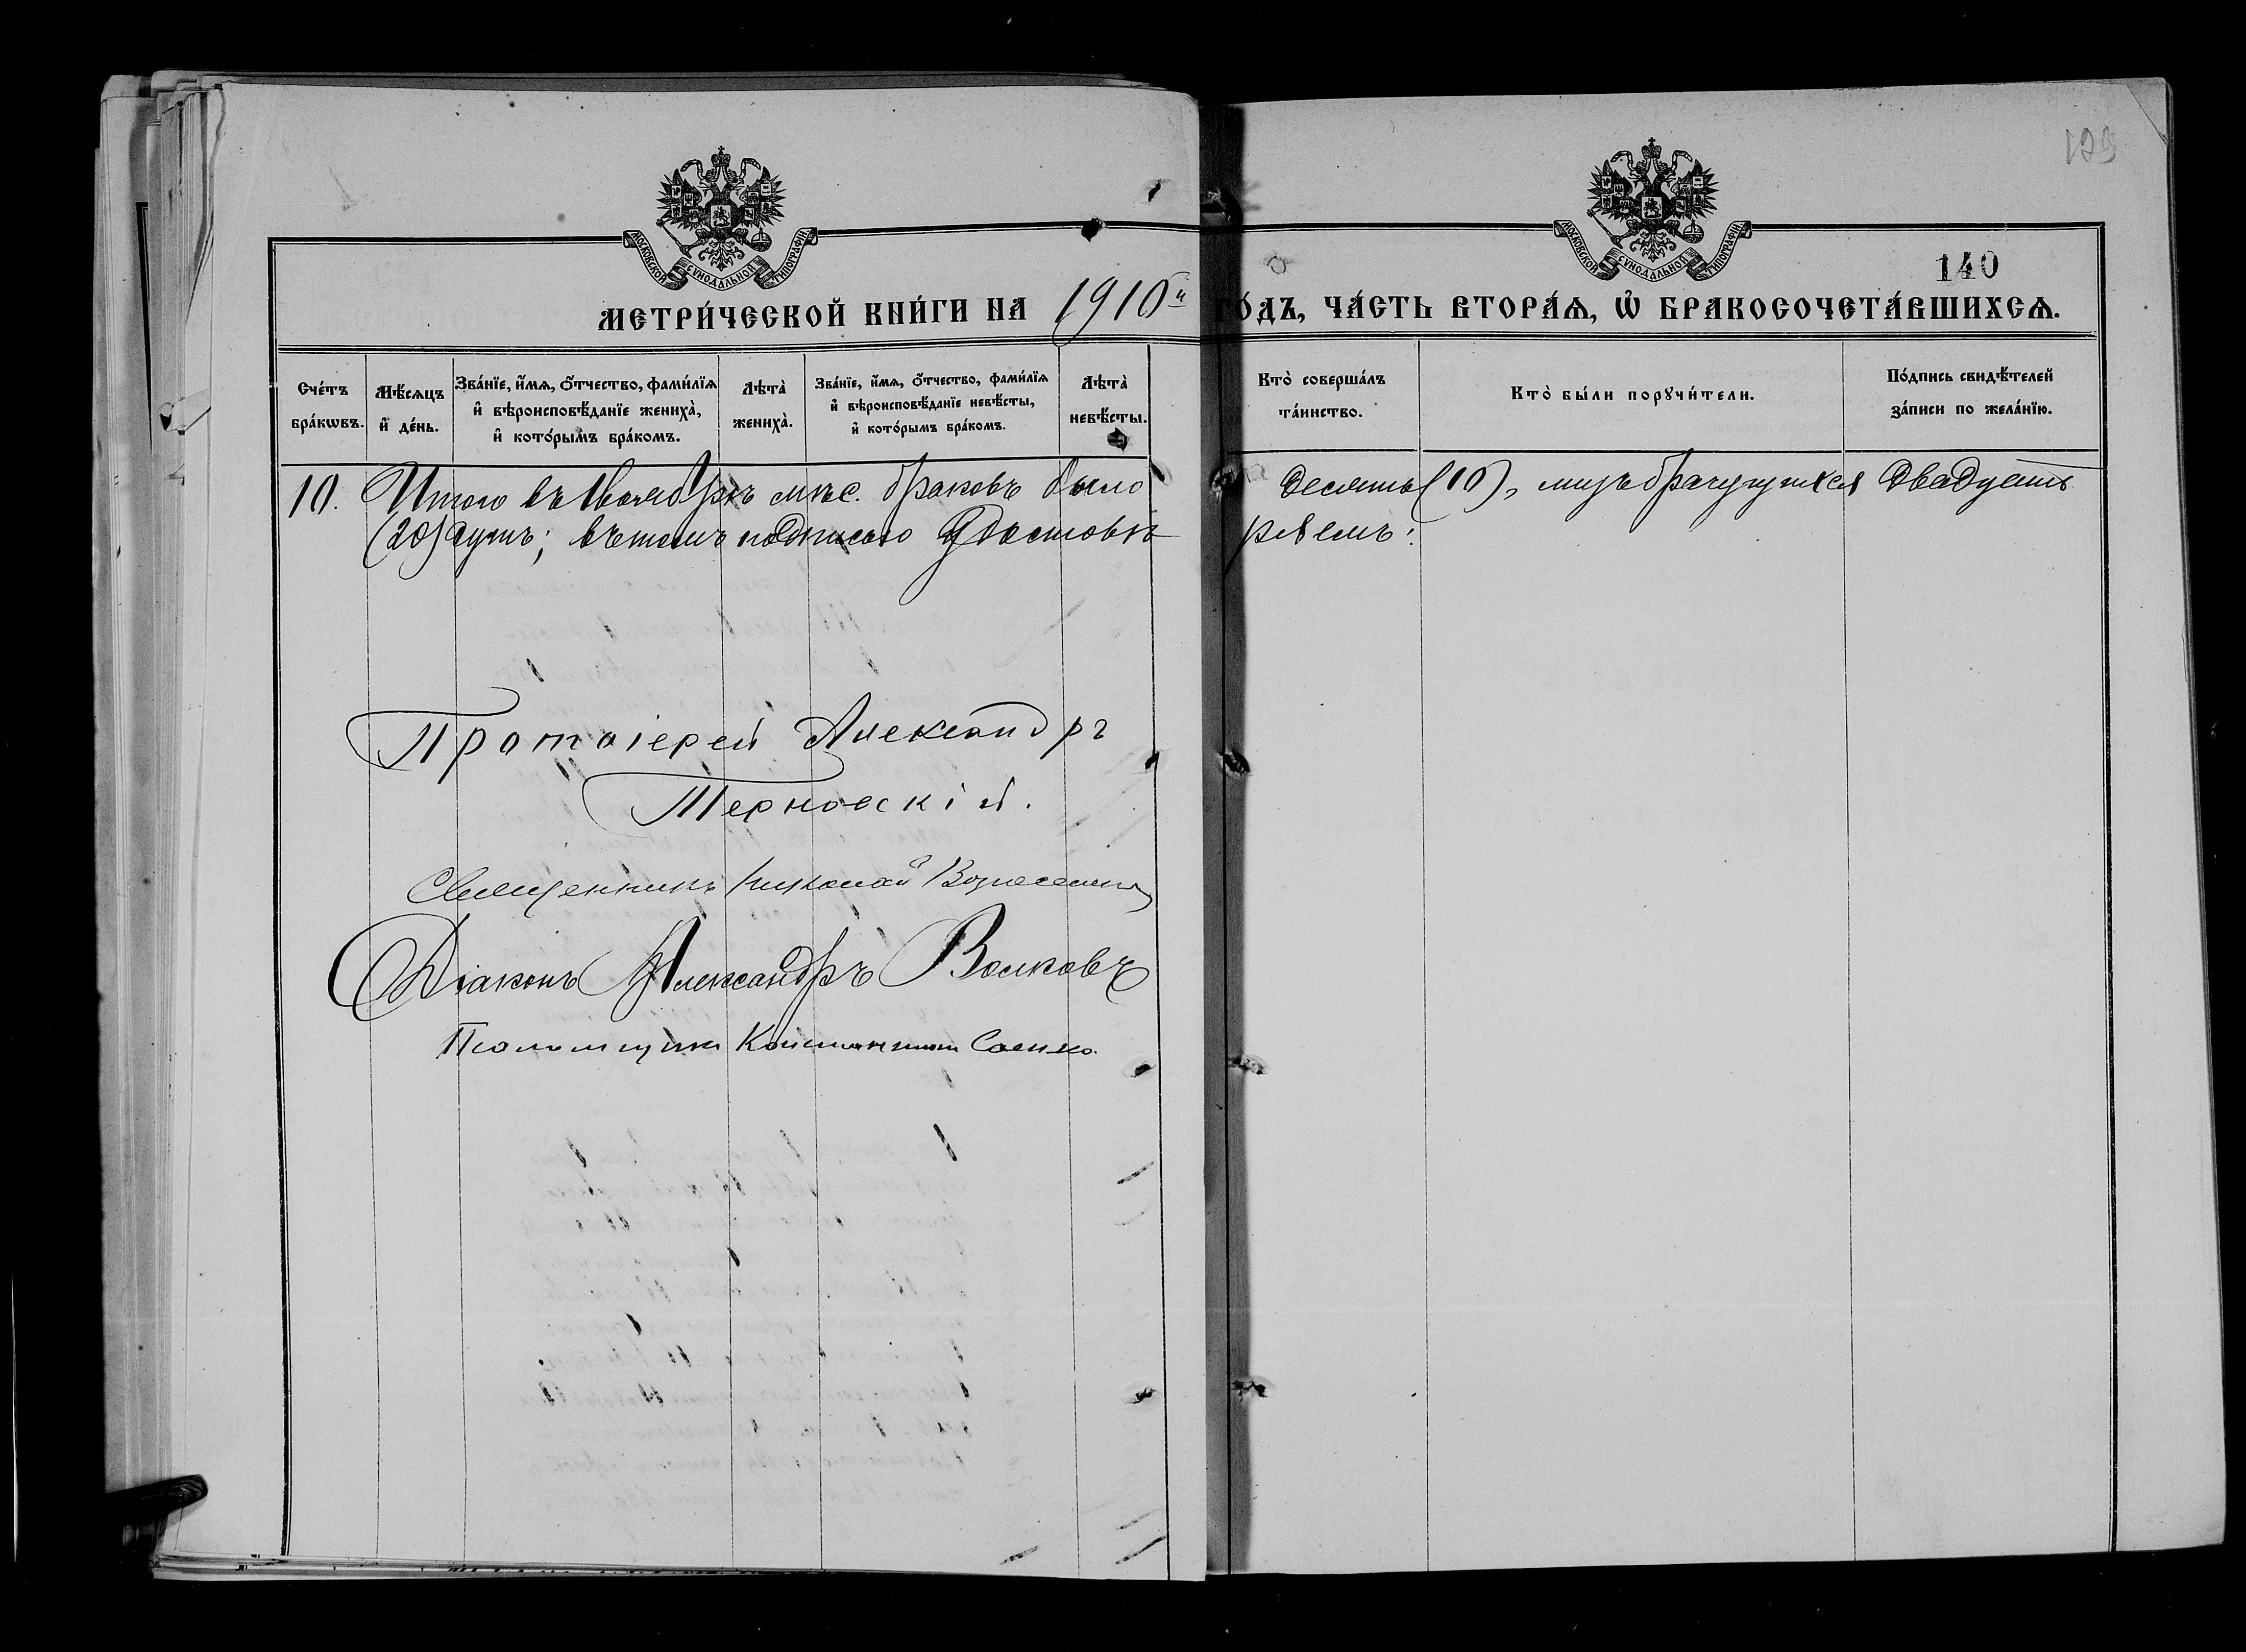 129
МОСКОВСКОЙ СѴНОДАЛЬНОЙ ТИПОГРАФІИ
МОСКОВСКОЙ СѴНОДАЛЬНОЙ ТИПОГРАФІИ
140
МЕТРИ́ЧЕСКОЙ КНИ́ГИ НА 1910й ГО́ДЪ, ЧА́СТЬ ВТОРА́Ѧ, Ѡ҆ БРАКОСОЧЕТА́ВШИХСѦ.
Сче́тъ бра́кѡвъ.
Мѣ́сѧцъ и҆ де́нь.
Зва́нїе, и҆́мѧ, ѻ҆́тчество, фами́лїѧ и҆ вѣроисповѣ́данїе жениха̀, и҆ кото́рымъ бра́комъ.
Лѣта̀ жениха̀.
Зва́нїе, и҆́мѧ, ѻ҆́тчество, фами́лїѧ и҆ вѣроисповѣ́данїе невѣ́сты, и҆ кото́рымъ бра́комъ.
Лѣта̀ невѣ́сты.
Кто̀ соверша́лъ та́инство.
Кто̀ бы́ли порꙋчи́тели.
По́дпись свидѣ́телей за́писи по жела́нїю.
10. Итого въ Ноябрѣ мѣс. браковъ было десять (10), лицъ брачущихся двадцать
(20) душъ; въ томъ подписью удостовѣряемъ:
Протоіерей Александръ
Терновскій.
Священникъ Николай Вознесенскій
Діаконъ Александръ Волковъ
Псаломщикъ Константинъ